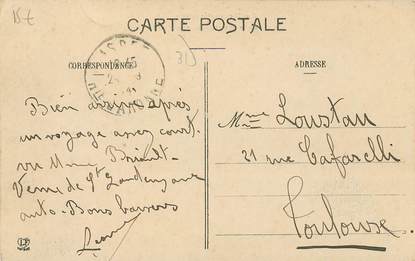 15€
CARTE POSTALE
CORRESPONDANCE
ADRESSE
Bien arrivé après
un voyage assez court.
vu Mme
Venu de St Gaudens en
auto. Bons baisers
Mme Loustau
21 rue Cafarelli
Toulouse